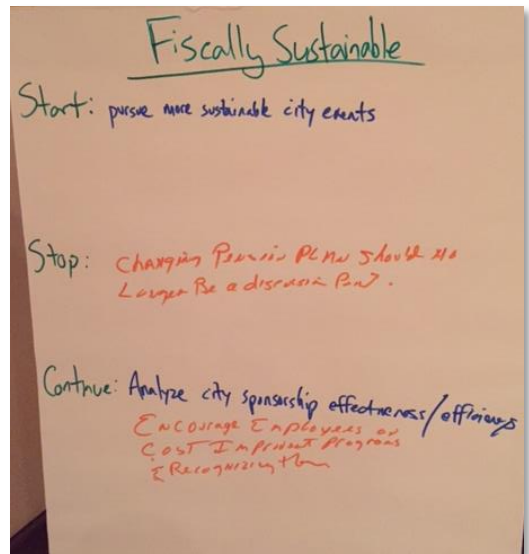 Fiscally Sustainable
Start: pursue more sustainable city events
Stop: Changing Pension Plan should no
Longer Be a discussion Point.
Continue: Analyze city sponsorship effectiveness/efficiency
Encourage Employees on
Cost Improvement Programs
& Recognizing them